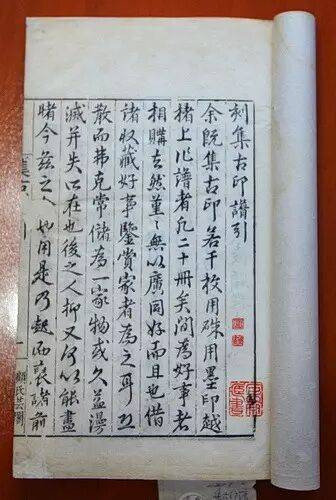 刻集古印譜引
余既集古印若干枚用硃用墨印越
楮上作譜者凡二十冊矣間為好事者
相購去然堇堇無以廣同好而且也借
諸收藏好事鑒賞家者為之耳
散而弗克常儲為一家物或久益漫
滅并失所在也後之人抑又何以能盡
睹今茲之也用是乃起而裒諸前
集古
顧氏芸閣